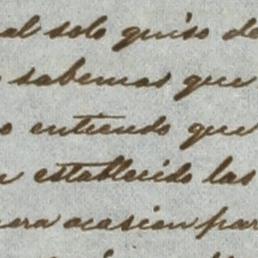 al solo quiso de
sabemos que
o entiendo que
n establecido las
ocasion par